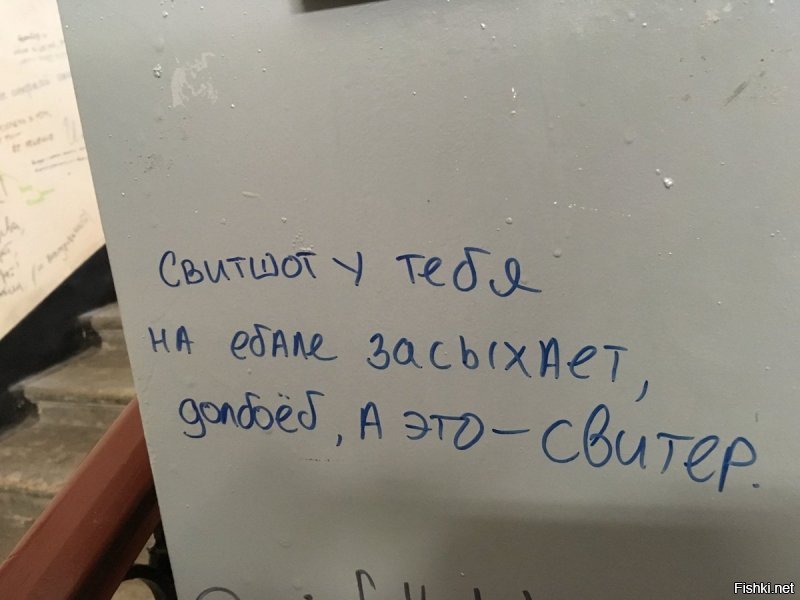 Свитшот у тебя
на ебале засыхает,
долбоёб, а это – свитер.
Fishki.net